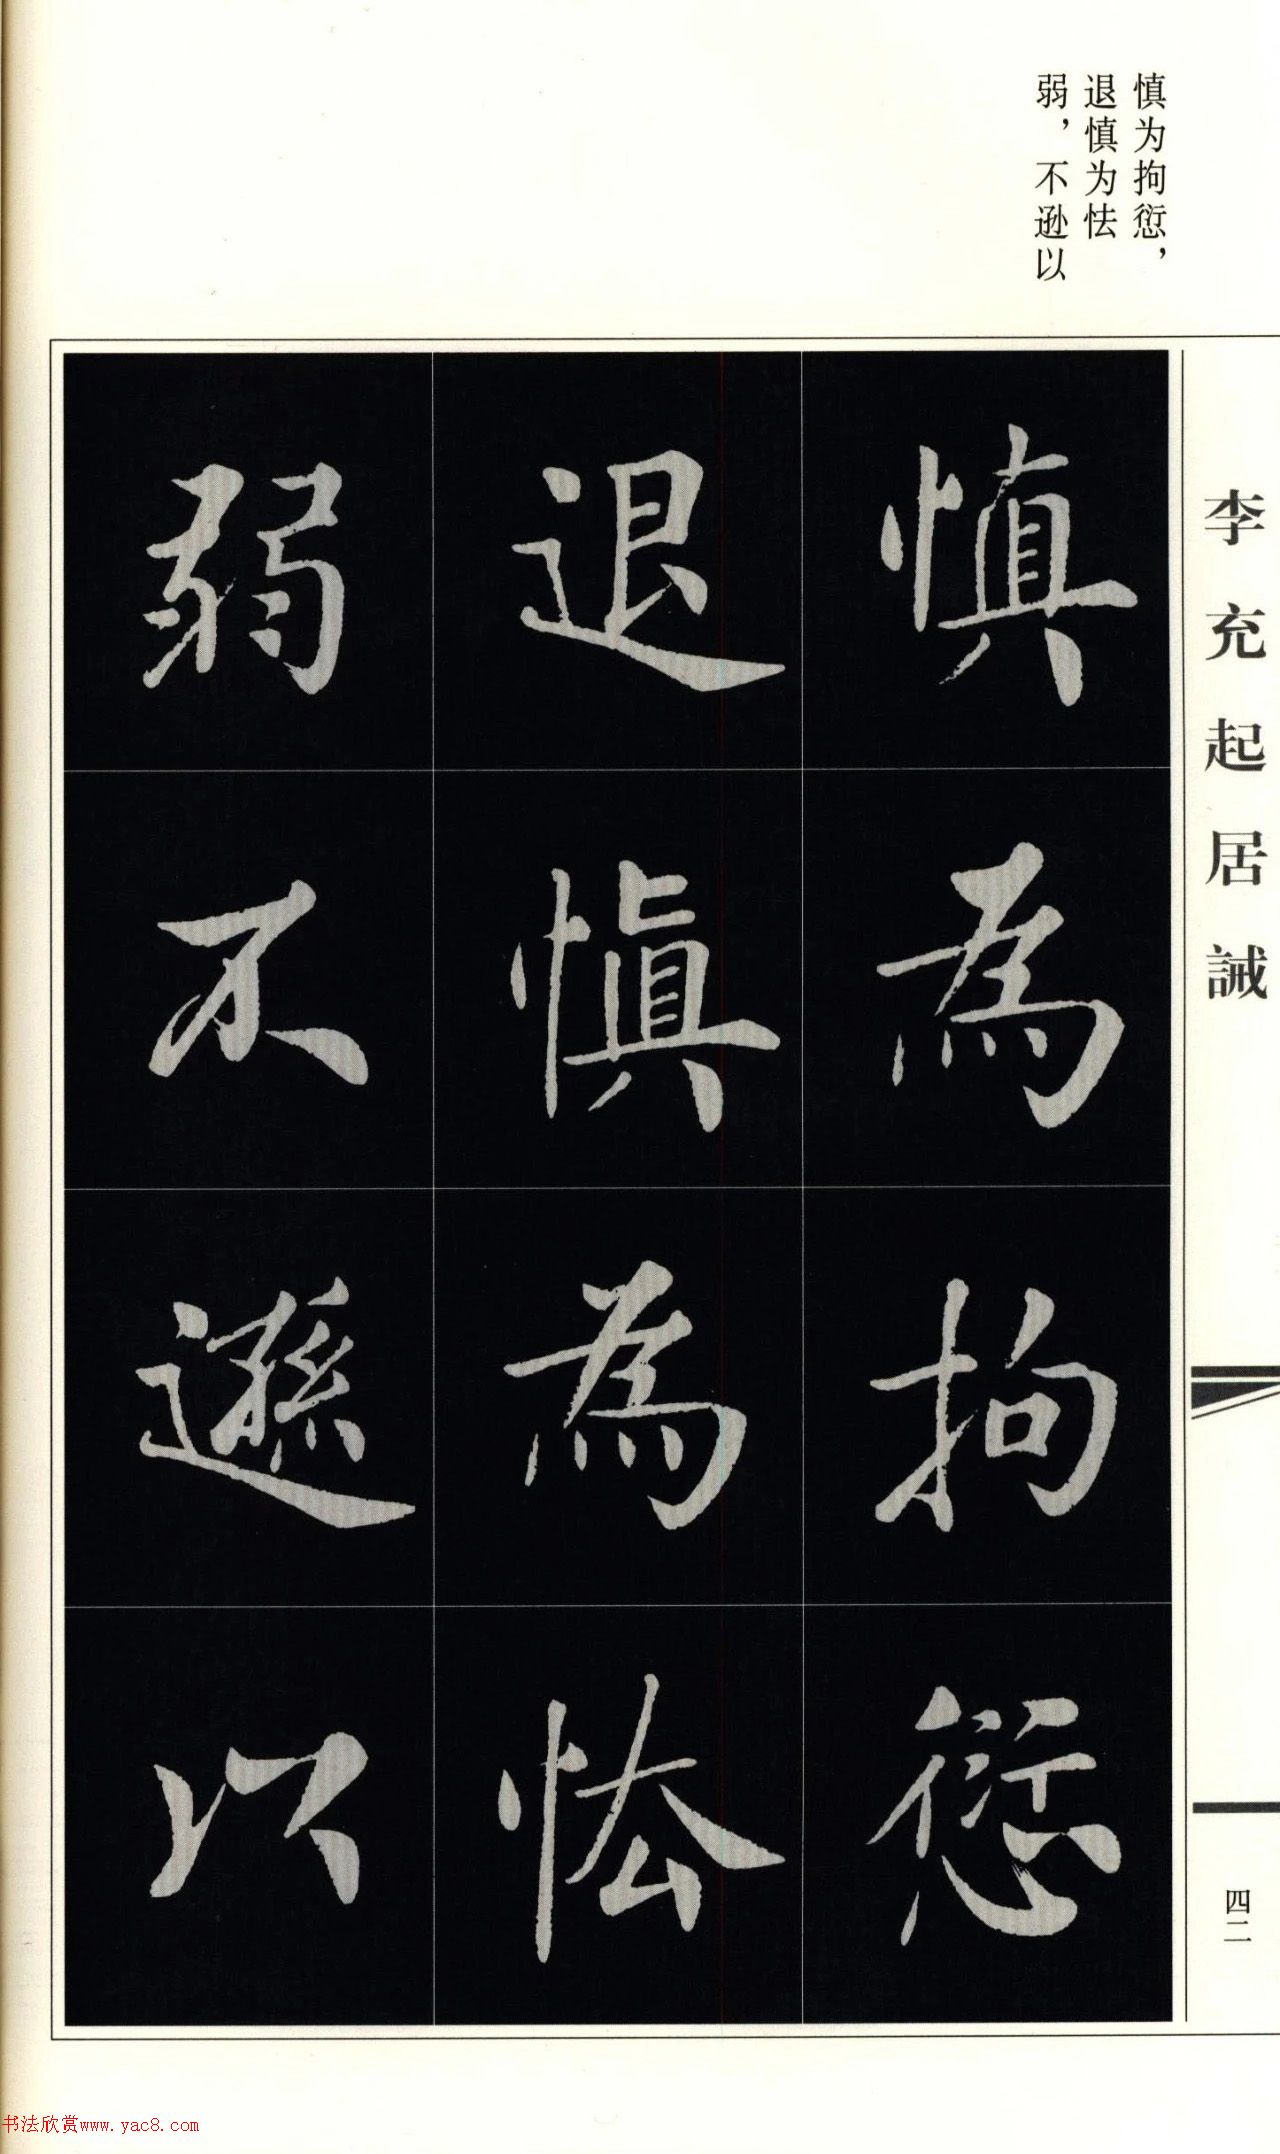 慎为拘愆，
退慎为怯
弱，不逊以
李充起居誡
慎為拘愆
退慎為怯
弱不遜以
四二
书法欣赏www.yac8.com